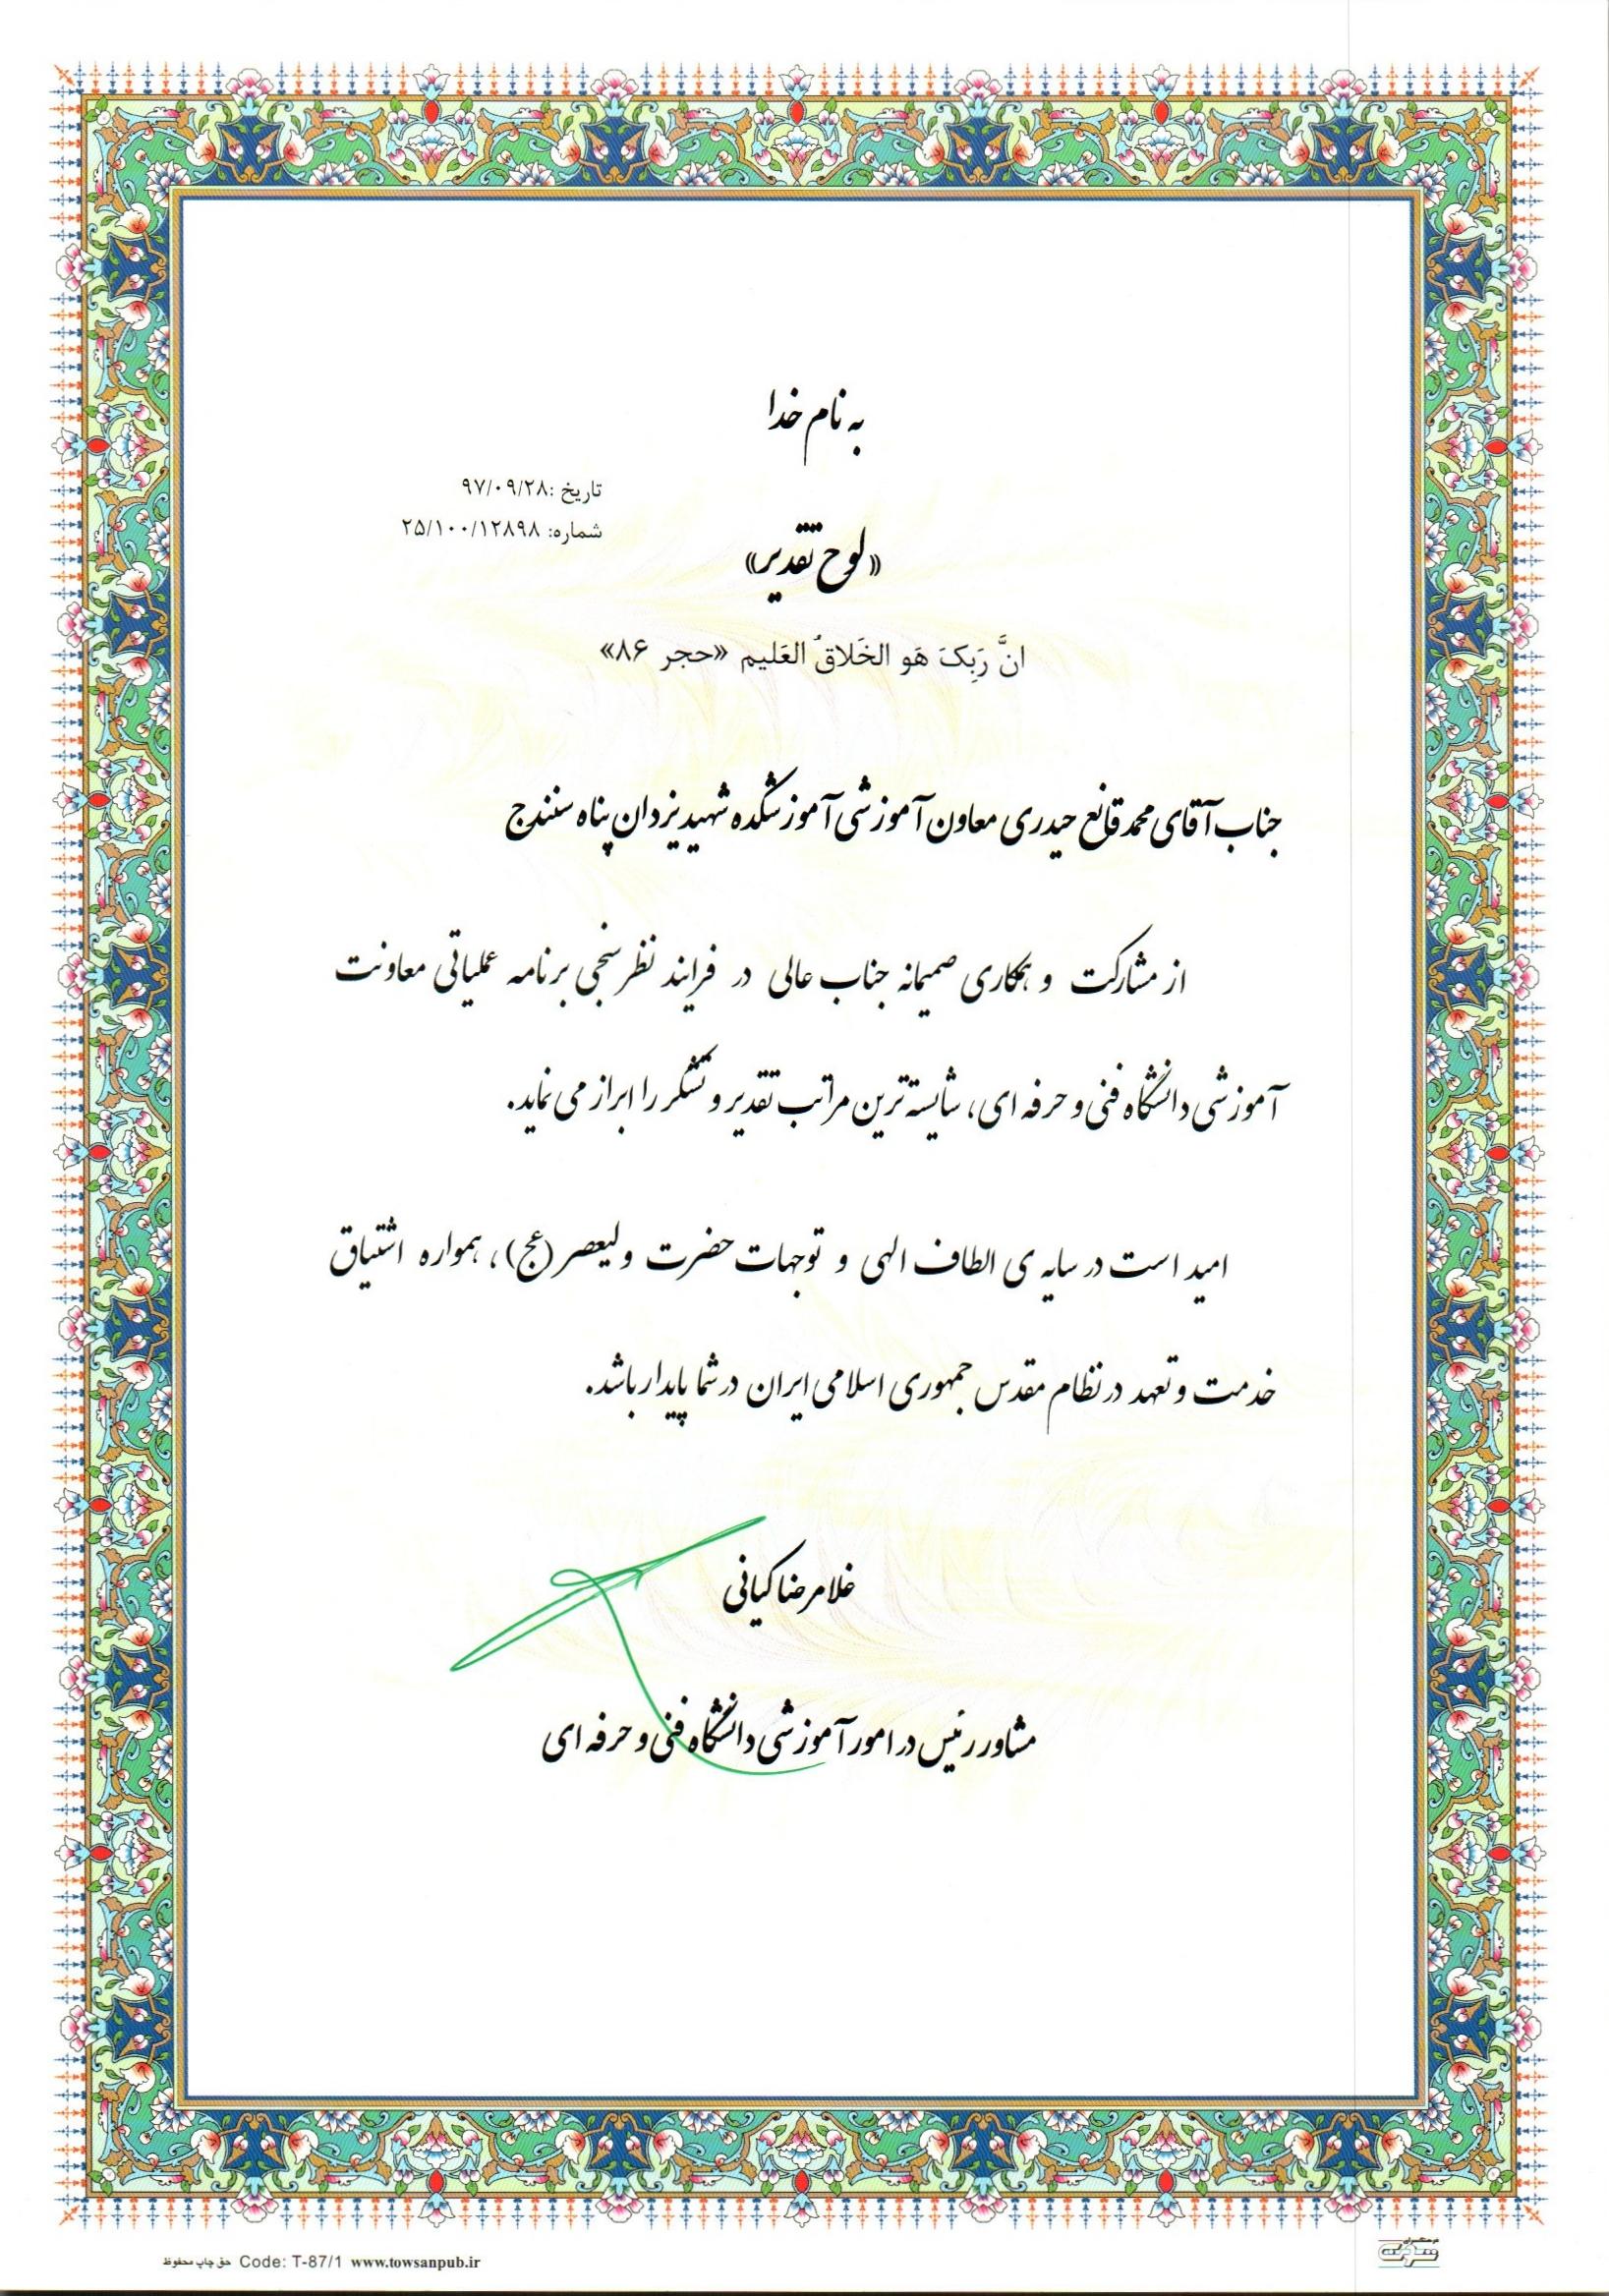 به نام خدا
تاریخ :۹۷/۰۹/۲۸
شماره: ۲۵/۱۰۰/۱۲۸۹۸
«لوح تقدیر»
انَّ رَبِکَ هَو الخَلاقُ العَلیم «حجر ۸۶»
جناب آقای محمد قانع حیدری معاون آموزشی آموزشکده شهید یزدان پناه سنندج
از مشارکت و همکاری صمیمانه جناب عالی در فرایند نظر سنجی برنامه عملیاتی معاونت
آموزشی دانشگاه فنی و حرفه ای، شایسته ترین مراتب تقدیر و تشکر را ابراز می نماید.
امید است در سایه ی الطاف الهی و توجهات حضرت ولیعصر (عج)، همواره اشتیاق
خدمت و تعهد در نظام مقدس جمهوری اسلامی ایران در شما پایدار باشد.
غلامرضا کیانی
مشاور رئیس در امور آموزشی دانشگاه فنی و حرفه ای
حق چاپ محفوظ Code: T-87/1 www.towsanpub.ir